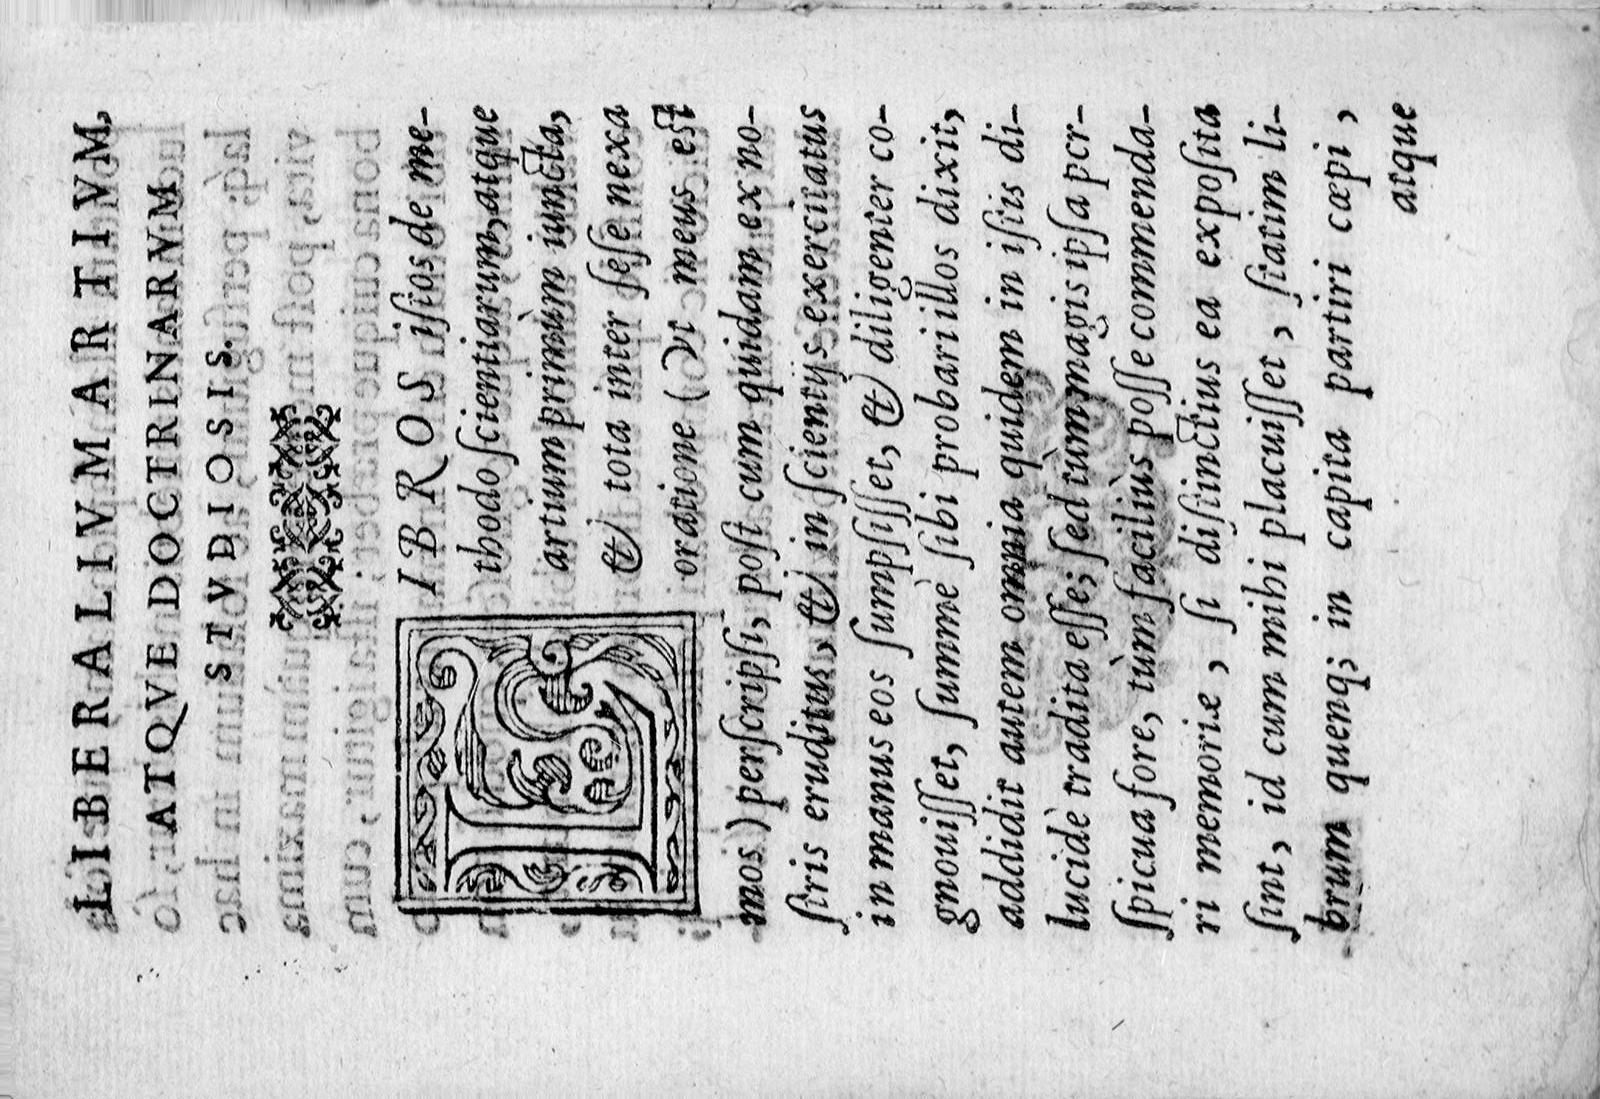 LIBERALIVM ARTIVM,
ATQVE DOCTRINARVM
STVDIOSIS.
LIBROS iſtos de me-
thodo ſcientiarum, atque
artium primùm iuncta,
& tota inter ſeſe nexa
oratione (vt meus eſt
mos) perſcripſi, poſt cum quidam ex no-
ſtris eruditus, & in ſcientijs exercitatus
in manus eos ſumpſiſſet, & diligenter co-
gnouiſſet, ſummè ſibi probari illos dixit,
addidit autem omnia quidem in iſtis di-
lucidè tradita eſſe; ſed tùm magis ipſa per-
ſpicua fore, tùm faciliùs poſſe commenda-
ri memoriæ, ſi diſtinctius ea expoſita
ſint, id cum mihi placuiſſet, ſtatim li-
brum quenq; in capita partiri cœpi,
atque